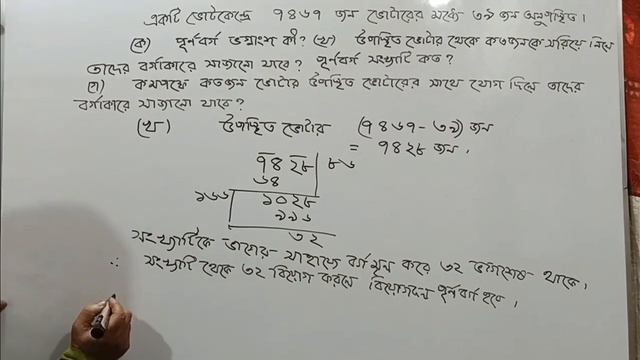 একটি ভোটকেন্দ্রে ৭৪৬৭ জন ভোটারের মধ্যে ৩৯ জন অনুপস্থিত।
(ক) পূর্নবর্গ ভগ্নাংশ কী? (খ) উপস্থিত ভোটার থেকে কতজনকে সরিয়ে নিলে
তাদের বর্গাকারে সাজানো যাবে? পূর্নবর্গ সংখ্যাটি কত?
(গ) কমপক্ষে কতজন ভোটার উপস্থিত ভোটারের সাথে যোগ দিলে তাদের
বর্গাকারে সাজানো যাবে?
(খ) উপস্থিত ভোটার (৭৪৬৭ - ৩৯) জন
= ৭৪২৮ জন।
৭৪২৮ ৮৬
৬৪
১৬৬ ১০২৮
৯৯৬
৩২
সংখ্যাটিকে ভাগের সাহায্যে বর্গমূল করে ৩২ ভাগশেষ থাকে।
∴ সংখ্যাটি থেকে ৩২ বিয়োগ করলে বিয়োগফল পূর্নবর্গ হবে।